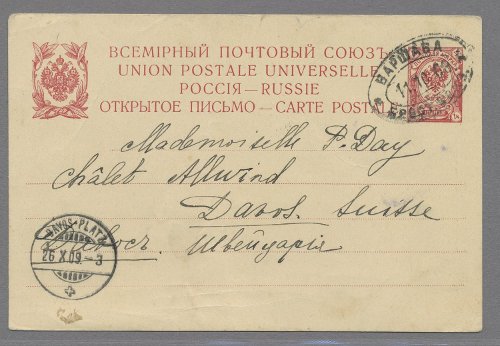 ВСЕМІРНЫЙ ПОЧТОВЫЙ СОЮЗЪ
UNION POSTALE UNIVERSELLE
РОССІЯ — RUSSIE
ОТКРЫТОЕ ПИСЬМО — CARTE POSTALE
ВАРШАВА
Mademoiselle P. Day
châlet Allwind
Davos. Suisse
Швейцарія
DAVOS-PLATZ
26.X.09.-3